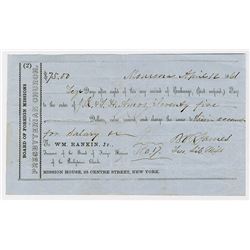 (2)
BOARD OF FOREIGN MISSIONS
PRESBYTERIAN CHURCH.
$75.00 Monrovia April 12 1861
Ten Days after sight of this my second of Exchange, (first unpaid,) Pay
to the order of H. Amos Seventy five
Dollars, value received, and charge the same to account
for salary
To WM. RANKIN, Jr. B. V. R. James
Treasurer of the Board of Foreign Missions
of the Presbyterian Church.
MISSION HOUSE, 23 CENTRE STREET, NEW YORK.